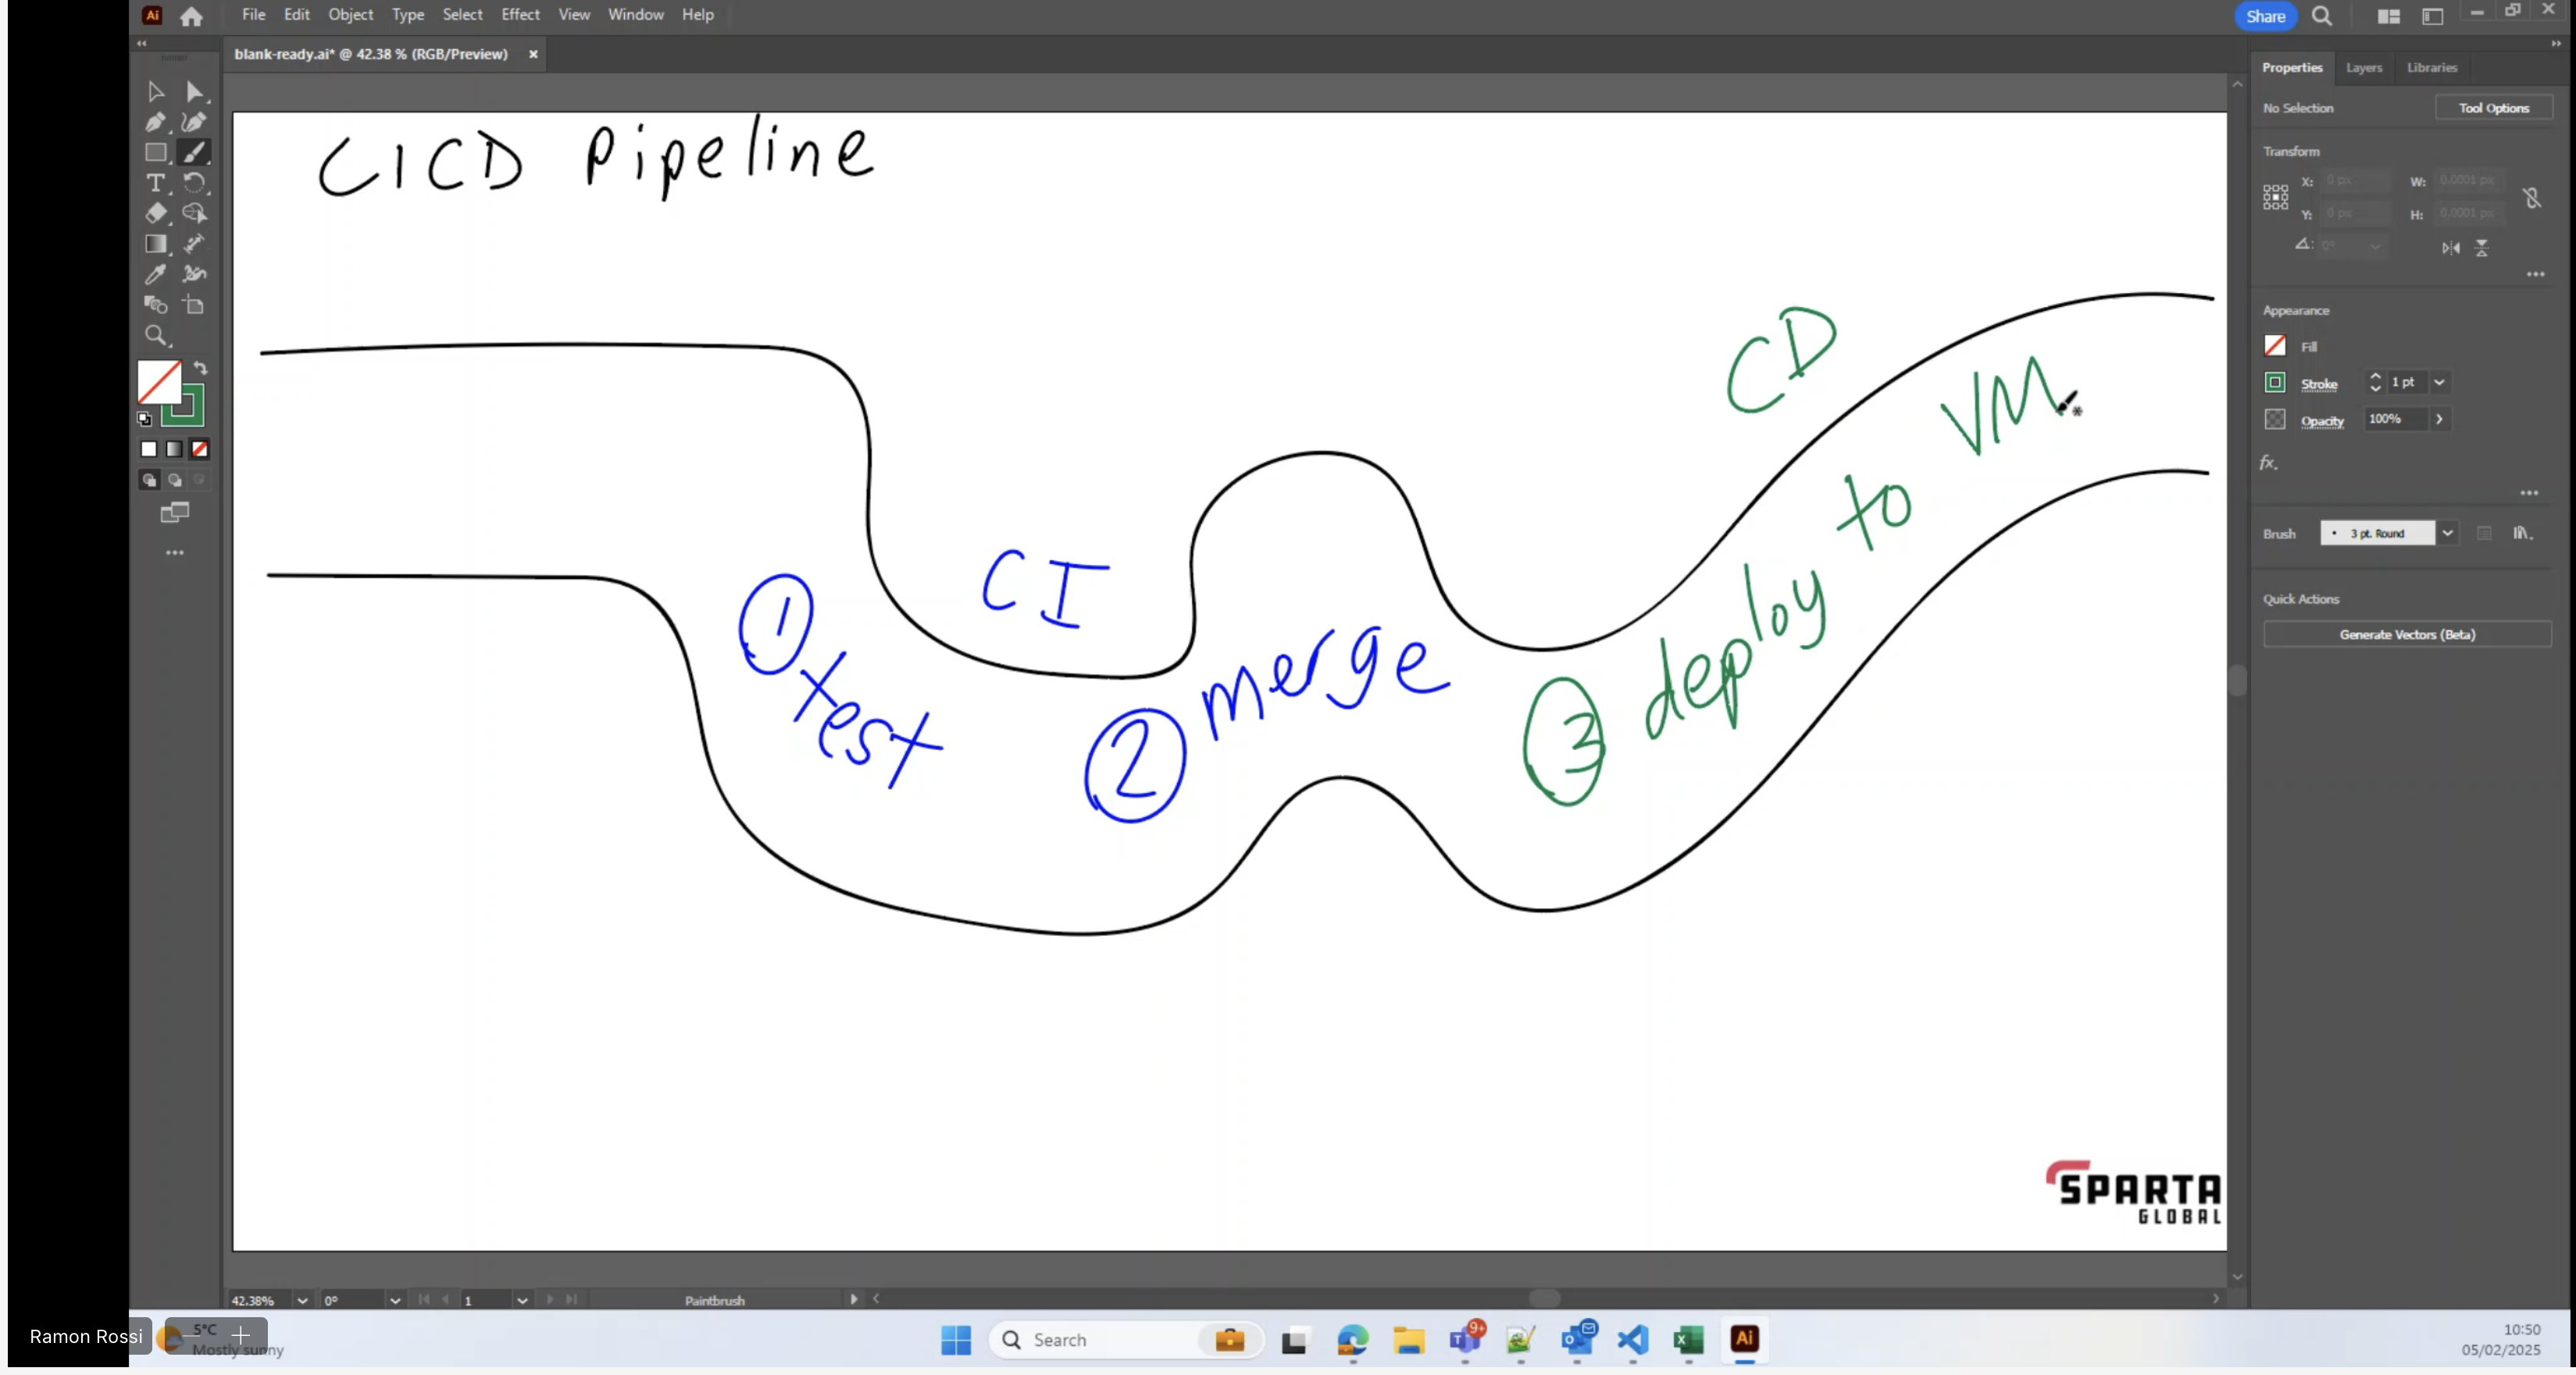 Ai File Edit Object Type Select Effect View Window Help Share
blank-ready.ai* @ 42.38 % (RGB/Preview) ×
CICD Pipeline
CI
CD
① test
② merge
③ deploy to VM
SPARTA
GLOBAL
Properties Layers Libraries
No Selection Tool Options
Transform
X: 0 px W: 0.0001 px
Y: 0 px H: 0.0001 px
0°
Appearance
Fill
Stroke 1 pt
Opacity 100%
fx.
Brush 3 pt. Round
Quick Actions
Generate Vectors (Beta)
42.38% 0° 1 Paintbrush
Ramon Rossi
5°C
Mostly sunny
Search
9+
Ai
10:50
05/02/2025